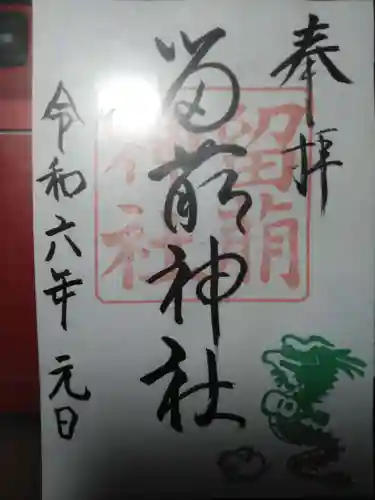 奉拝
留萠神社
留萠
神社
令和六年 元日